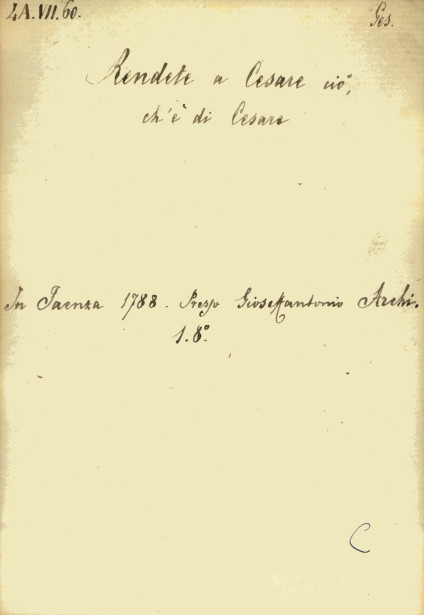 4A.VII.60.
Ges.
Rendete a Cesare ciò,
ch'è di Cesare
In Faenza 1788. Presso Gioseffantonio Archi.
1.8°
C